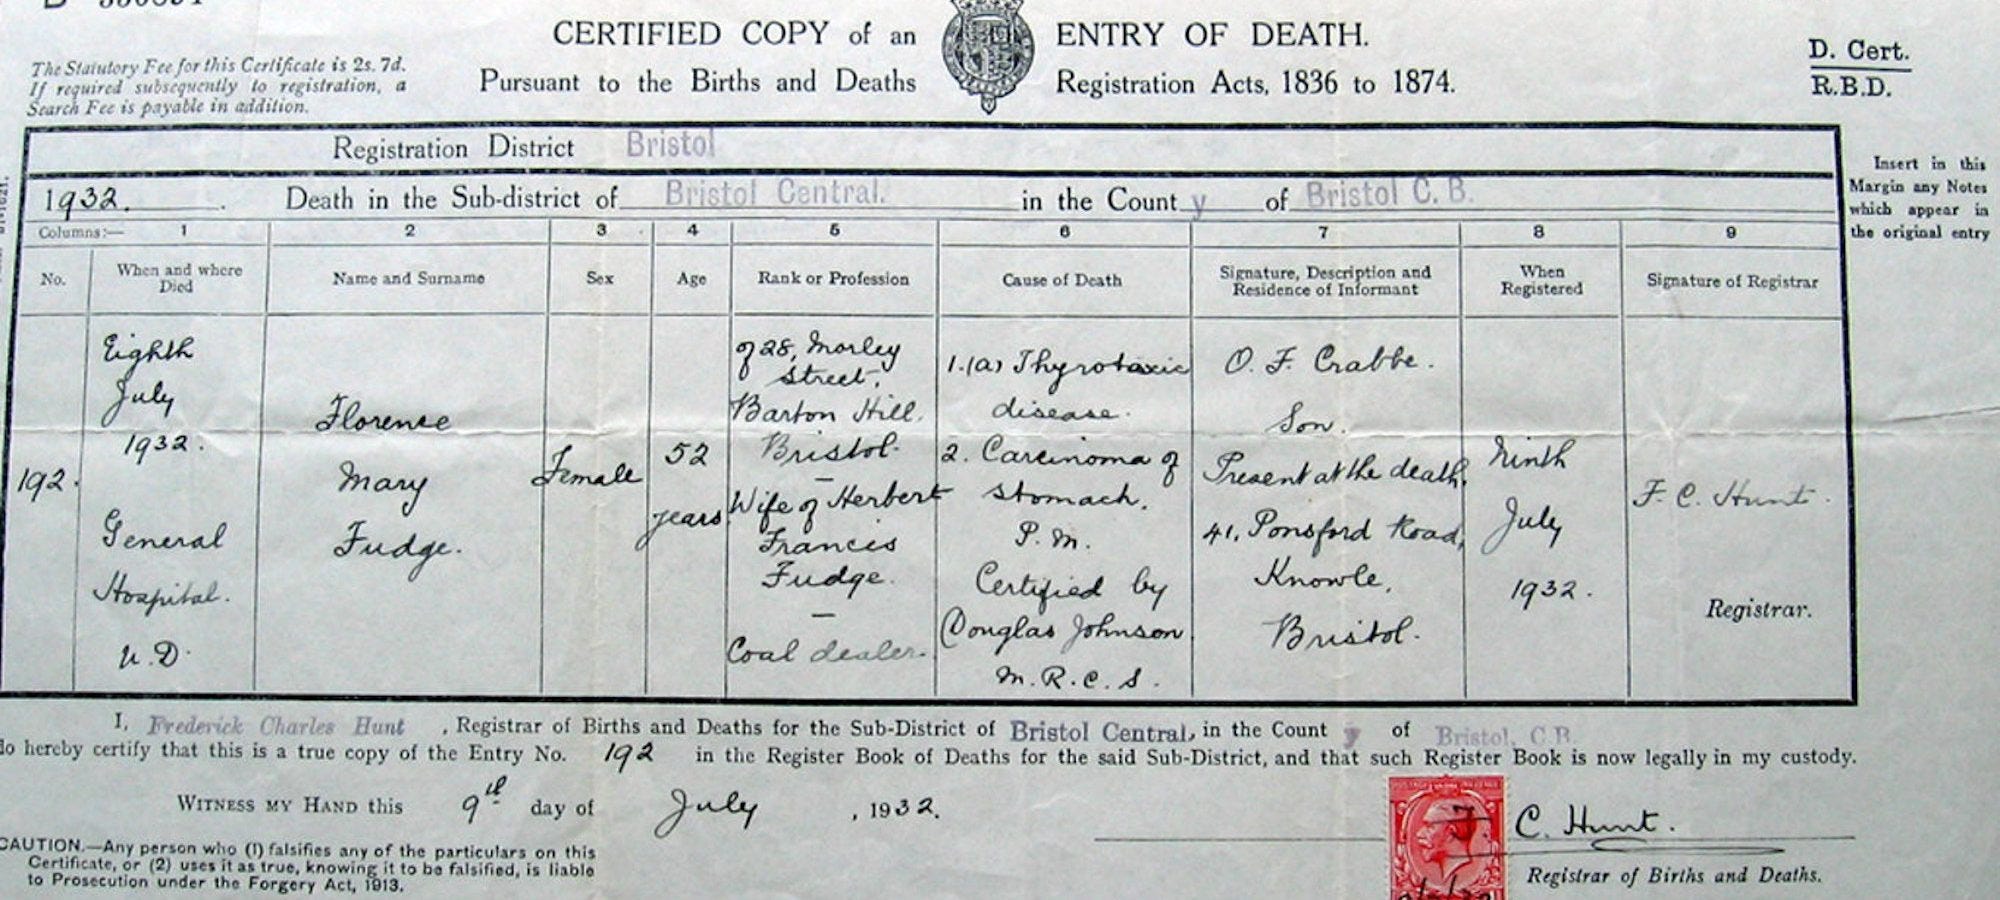 CERTIFIED COPY of an ENTRY OF DEATH.
Pursuant to the Births and Deaths Registration Acts, 1836 to 1874.
D. Cert.
R.B.D.
The Statutory Fee for this Certificate is 2s. 7d.
If required subsequently to registration, a
Search Fee is payable in addition.
Registration District Bristol
1932. Death in the Sub-district of Bristol Central. in the County of Bristol C.B.
Insert in this
Margin any Notes
which appear in
the original entry
Columns:— 1 2 3 4 5 6 7 8 9
No.
When and where
Died
Name and Surname
Sex
Age
Rank or Profession
Cause of Death
Signature, Description and
Residence of Informant
When
Registered
Signature of Registrar
192.
Eighth
July
1932.
General
Hospital.
U.D.
Florence
Mary
Fudge.
Female
52
years
of 28, Morley
Street,
Barton Hill.
Bristol.
—
Wife of Herbert
Francis
Fudge.
—
Coal dealer.
1.(a) Thyrotoxic
disease.
2. Carcinoma of
Stomach.
P.M.
Certified by
Douglas Johnson
M.R.C.S.
O. F. Crabbe.
Son.
Present at the death.
41, Ponsford Road,
Knowle,
Bristol.
Ninth
July
1932.
F. C. Hunt.
Registrar.
I, Frederick Charles Hunt, Registrar of Births and Deaths for the Sub-District of Bristol Central, in the County of Bristol, C.B.
do hereby certify that this is a true copy of the Entry No. 192 in the Register Book of Deaths for the said Sub-District, and that such Register Book is now legally in my custody.
WITNESS MY HAND this 9th day of July, 1932.
F. C. Hunt.
Registrar of Births and Deaths.
CAUTION.—Any person who (1) falsifies any of the particulars on this
Certificate, or (2) uses it as true, knowing it to be falsified, is liable
to Prosecution under the Forgery Act, 1913.